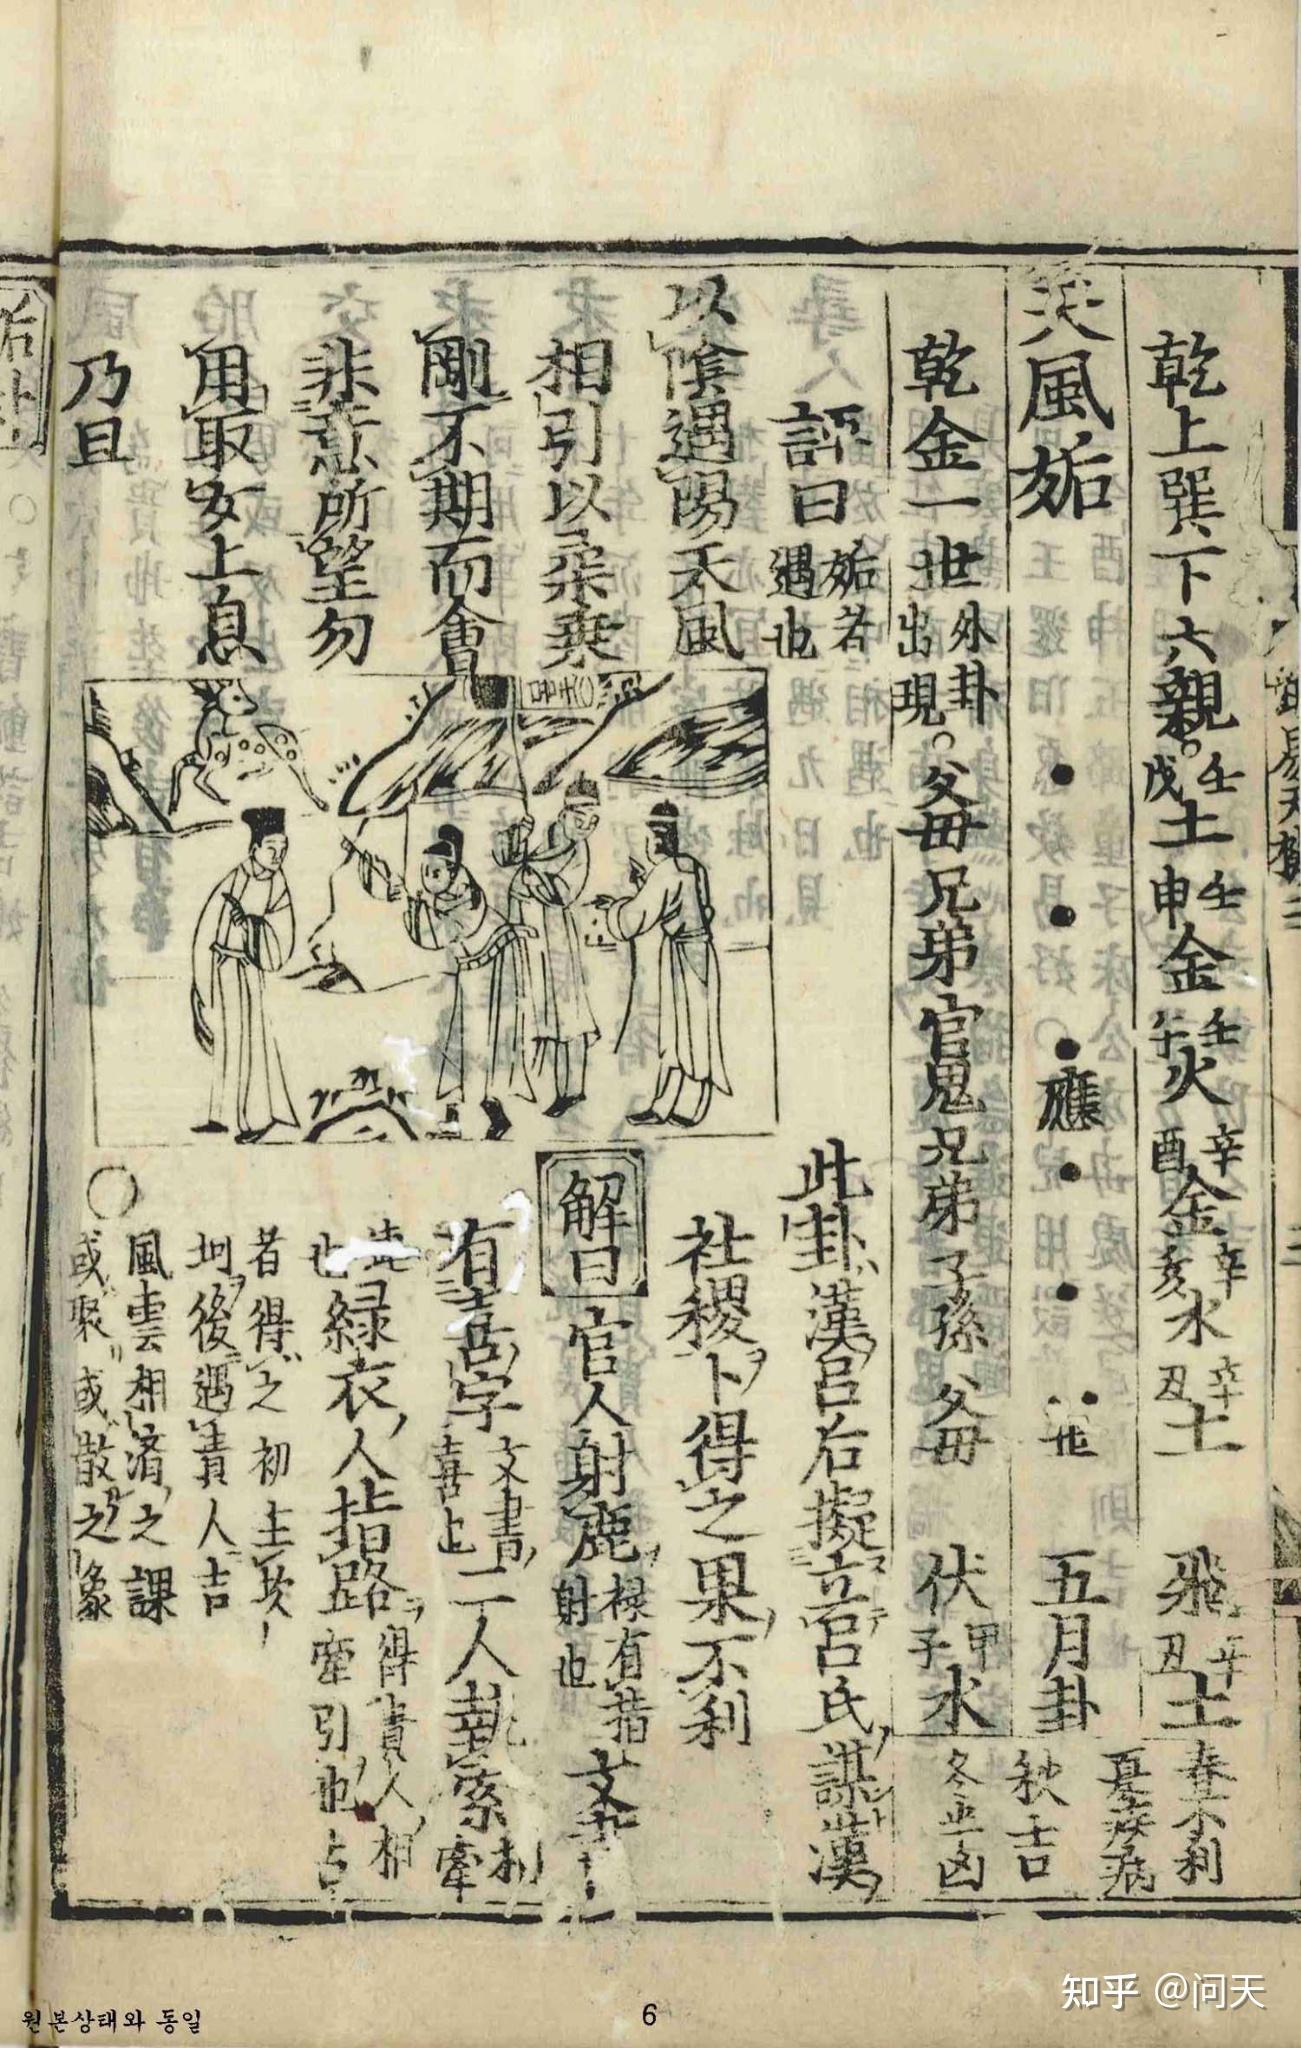 乾上巽下六親○壬戌土壬申金壬午火辛酉金辛亥水辛丑土
飛辛丑土
春不利
夏疾病
天風姤
應
世
五月卦
秋吉
冬凶
乾金一世外卦出現○父母兄弟官鬼兄弟子孫父母
伏甲子水
評曰姤者遇也
以陰遇陽天風
相引以柔乘
剛不期而會
非意所望勿
用取女上息
乃且
此卦漢呂右擬立呂氏謀漢
社稷卜得之果不利
解曰官人射鹿祿有指射也文書
有喜字文書喜上二人執索相牽
也綠衣人指路得貴人相牽引也占
者得之初主坎坷後遇貴人吉
風雲相濟之課
或聚或散之象
원본상태와 동일
6
知乎 @问天